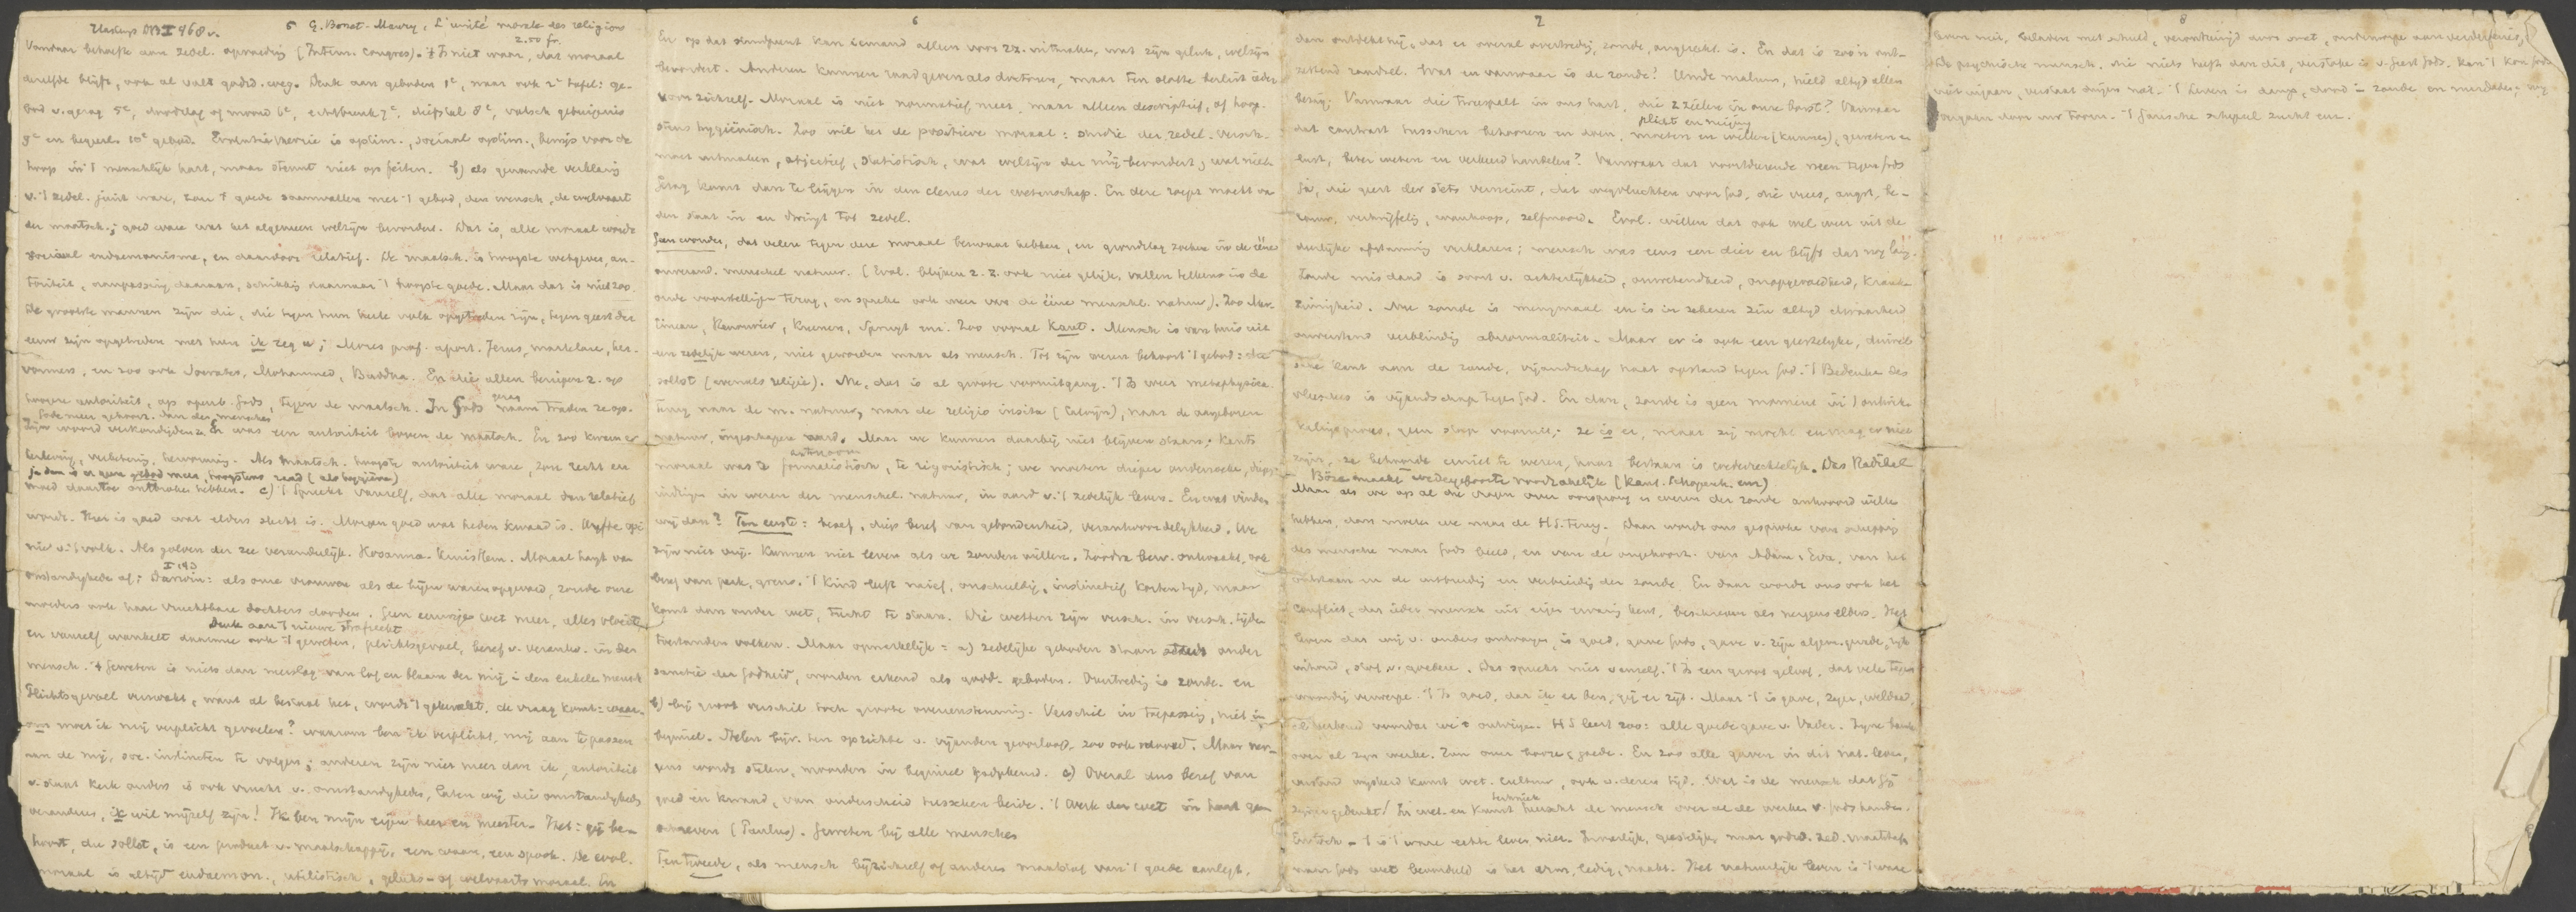 5 G. Bonet-Maury, L'unité morale des religions
2.50 fr.
Vandaar behoefte aan zedel. opvoeding (Intern. Congres). 't Is niet waar, dat moraal
dezelfde blijft, ook al valt godsd. weg. Denk aan geboden 1e, maar ook 2e tafel: ge-
bod v. gezag 5e, doodslag of moord 6e, echtbreuk 7e, diefstal 8e, valsch getuigenis
9e en begeerte 10e gebod. Evolutietheorie is optim., sociaal optim., bewijs voor de
hoop in 't menschelijk hart, maar steunt niet op feiten. b) als genoemde verklaring
v. 't zedel. juist ware, zou 't goede saamvallen met 't gebod, den mensch, de welvaart
der maatsch.; goed ware wat het algemeen welzijn bevordert. Dat is, alle moraal wordt
sociaal eudaemonisme, en daardoor relatief. De maatsch. is hoogste wetgever, au-
toriteit, aanpassing daaraan, schikking daarnaar 't hoogste goede. Maar dat is niet zoo.
De grootste mannen zijn die, die tegen hun heele volk opgetreden zijn, tegen geest der
eeuw zijn opgetreden met hun ik zeg u; Mozes prof. apost. Jezus, martelare, her-
vormers, en zoo ook Socrates, Mohammed, Buddha. En die allen beriepen z. op
hoogere autoriteit, op openb. Gods, tegen de maatsch. In Gods naam traden ze op.
Gode meer gehoorz. dan den menschen
Zijn woord verkondigden z. Er was een autoriteit boven de maatsch. En zoo kwam er
herleving, verbetering, hervorming. Als maatsch. hoogste autoriteit ware, zou recht en
ja dan is er geen gebod meer, hoogstens raad (als hygiëne)
moed daartoe ontbroken hebben. c) 't Spreekt vanzelf, dat alle moraal dan relatief
wordt. Hier is goed wat elders slecht is. Morgen goed wat heden kwaad is.
v. 't volk. Als golven der zee veranderlijk. Hosanna. Kruist Hem. Moraal hangt van
omstandigheden af; Darwin: als onze vrouwen als de bijen waren opgevoed, zouden onze
moeders ook haar vruchtbare dochters dooden. Geen eeuwige wet meer, alles vloeit
Denk aan 't nieuwe strafrecht
en vanzelf wankelt daarmee ook 't geweten, plichtsgevoel, besef v. verantw. in den
mensch. 't Geweten is niets dan neerslag van lof en blaam der mij in den enkele mensch
Plichtsgevoel verzwakt, want al bestaat het, wordt 't gekweekt, de vraag komt: waar-
om moet ik mij verplicht gevoelen? waarom ben ik verplicht, mij aan te passen
aan de mij, soc. instincten te volgen; anderen zijn niet meer dan ik, autoriteit
v. staat kerk ouders is ook vrucht v. omstandigheden, laten wij die omstandigheden
veranderen, ik wil mijzelf zijn! Ik ben mijn eigen heer en meester. Het: gij be-
hoort, du sollst, is een product v. maatschappij, een waan, een spook. De evol.
moraal is altijd eudaemon., utilistisch, geluks- of welvaarts moraal. En
6
En op dat standpunt kan iemand alleen voor z.z. uitmaken, wat zijn geluk, welzijn
bevordert. Anderen kunnen raad geven als doctoren, maar ten slotte beslist ieder
voor zichzelf. Moraal is niet normatief meer, maar alleen descriptief, of hoog-
stens hygiënisch. Zoo wil het de positieve moraal: studie der zedel. versch.
moet uitmaken, objectief, statistisch, wat welzijn der mij bevordert, wat niet.
Gezag komt dan te liggen in den clerus der wetenschap. En deze roept macht van
den staat in en dwingt tot zedel.
Geen wonder, dat velen tegen deze moraal bezwaar hebben, en grondslag zoeken in de ééne
onverand. menschel. natuur. (Evol. blijven z.z. ook niet gelijk, vallen telkens in de
oude voorstelling terug, en spreken ook weer van de ééne menschel. natuur). Zoo
Renouvier, Kuenen, Spruyt enz. Zoo vooral Kant. Mensch is van huis uit
een zedelijk wezen, niet geworden maar als mensch. Tot zijn wezen behoort 't gebod: du
sollst (evenals religie). Nu, dat is al groote vooruitgang. 't Is weer metaphysica.
Terug naar de m. natuur, naar de religio insita (Calvijn), naar de aangeboren
natuur, ingeschapen aard. Maar we kunnen daarbij niet blijven staan; Kants
autonoom
moraal was te formalistisch, te rigoristisch; we moeten dieper onderzoeken, diep
indringen in wezen der menschel. natuur, in aard v. 't zedelijk leven. En wat vinden
wij dan? Ten eerste: besef, diep besef van gebondenheid, verantwoordelijkheid. We
zijn niet vrij. Kunnen niet leven als we zouden willen. Zoodra bew. ontwaakt, ook
besef van perk, grens. 't Kind leeft naief, onschuldig, instinctief korten tijd, maar
komt dan onder wet, tucht te staan. Die wetten zijn versch. in versch. tijden
toestanden volken. Maar opmerkelijk: a) zedelijke geboden staan steeds onder
sanctie der Godheid, worden erkend als godd. geboden. Overtreding is zonde. en
b) bij groot verschil toch groote overeenstemming. Verschil in toepassing, niet in
beginsel. Stelen bijv. ten opzichte v. vijanden geoorloofd, zoo ook moord. Maar ner-
gens wordt stelen, moorden in beginsel goedgekeurd. c) Overal dus besef van
goed en kwaad, van onderscheid tusschen beide. 't Werk der wet in hart ge-
schreven (Paulus). Geweten bij alle menschen
Ten tweede, als mensch bij zichzelf of anderen maatstaf van 't goede aanlegt,
7
dan ontdekt hij, dat er overal overtreding, zonde, ongerecht. is. En dat is zoo'n ont-
zettend raadsel. Wat en vanwaar is de zonde? Unde malum, hield altijd allen
bezig. Vanwaar die tweespalt in ons hart, die 2 zielen in onze borst? Vanwaar
plicht en neiging
dat contrast tusschen behooren en doen, moeten en willen (kunnen), geweten en
lust, beter weten en verkeerd handelen? Vanwaar dat voortdurende neen tegen Gods
ja, die geest der stets verneint, dat wegvluchten voor God, die vrees, angst, be-
rouw, vertwijfeling, wanhoop, zelfmoord. Evol. willen dat ook wel weer uit de
dierlijke afstamming verklaren; mensch was eens een dier en blijft dat nog lang.
Zonde misdaad is soort v. achterlijkheid, onwetendheid, onopgevoedheid, krank-
zinnigheid. Nu zonde is menigmaal en is in zekeren zin altijd dwaasheid
onwetend verblinding abnormaliteit. Maar er is ook een geestelijke, duivel-
sche kant aan de zonde, vijandschap haat opstand tegen God. 't Bedenken des
vleesches is vijandschap tegen God. En dan, zonde is geen moment in 't ontwik-
kelingsproces, geen stap vooruit; ze is er, maar zij mocht en mag er niet
zijn, ze behoorde er niet te wezen, haar bestaan is wederrechtelijk. Das Radikal
Böse maakt wedergeboorte noodzakelijk (Kant. Schopenh. enz)
Maar als we op al die vragen over oorsprong en wezen der zonde antwoord willen
hebben, dan moeten we naar de H.S. terug. Daar wordt ons gesproken van schepping
des menschen naar Gods beeld, en van de ongehoorz. van Adam & Eva, van het
ontstaan en de uitbreiding en verbreiding der zonde. En daar wordt ons ook het
conflict, dat ieder mensch uit eigen ervaring kent, beschreven als nergens elders. Het
leven dat wij v. ouders ontvangen, is goed, gave Gods, gave v. zijn algem. genade, rijk
inhoud, stof v. goederen. Dat spreekt niet vanzelf. 't Is een groot geloof, dat velen tegen-
woordig verwerpen. 't Is goed, dat ik er ben, gij er zijt. Maar 't is gave, zegen, weldaad,
verband waardoor we 't ontvingen. H S leert zoo: alle goede gave v. Vader. Zijne barmh.
over al zijn werken. Zon over booze & goede. En zoo alle gaven in dit nat. leven,
verstand wijsheid kunst wet. cultuur, ook v. dezen tijd. Wat is de mensch dat Gij
techniek
zijner gedenkt! In wet. en kunst heerscht de mensch over al de werken v. Gods handen.
En toch - 't is 't ware echte leven niet. Innerlijk, geestelijk, naar godsd. zed. maatstaf
naar Gods wet beoordeeld is het arm, ledig, naakt. Het natuurlijke leven is 't ware
8
leven niet, beladen met schuld, verontreinigd door smet, onderworpen aan verderfenis,
de psychische mensch, die niets heeft dan dit, verstoken is v. Geest Gods, kan 't Kon. Gods
niet ingaan, verstaat dingen niet. 't Leven is dood in zonde en misdaden. Wij
vergaan door uw toorn. 't Gansche schepsel zucht enz.